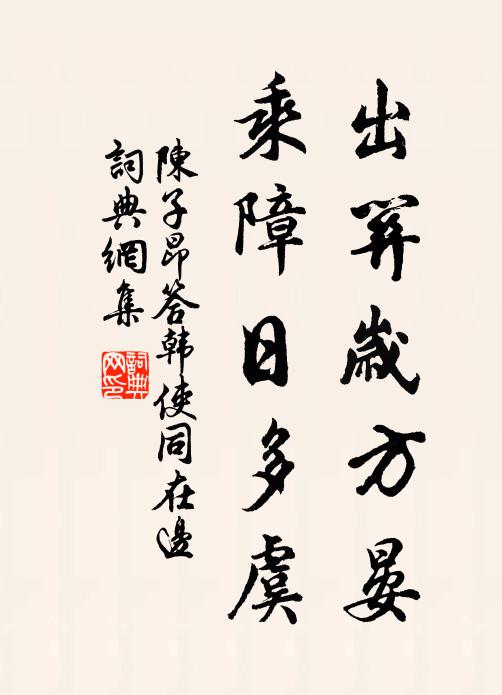 出關歲方晏
乘障日多虞
陳子昂答韓使同在邊
詞典網集
詞典
网印